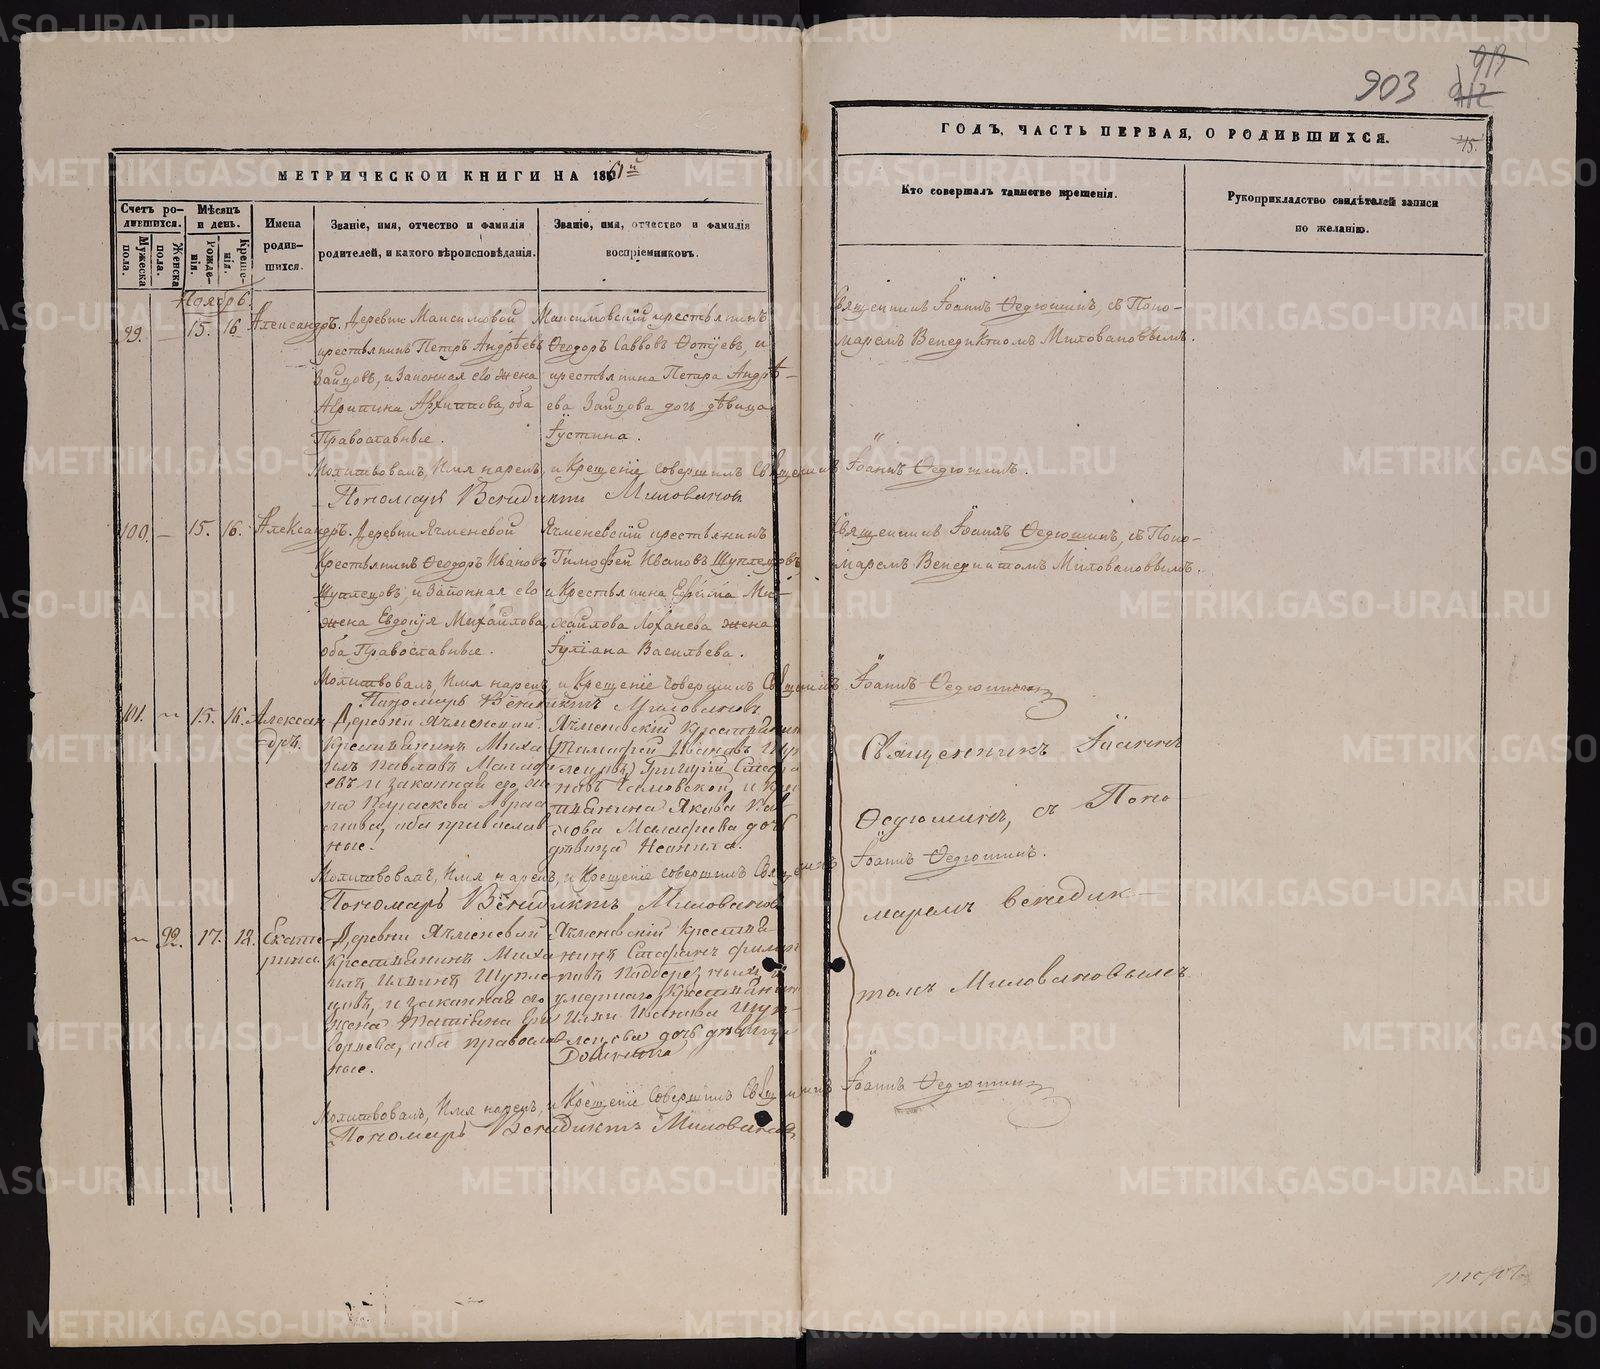 903
913
912
МЕТРИЧЕСКОЙ КНИГИ НА 1861й
ГОДЪ, ЧАСТЬ ПЕРВАЯ, О РОДИВШИХСЯ.
Счетъ родившихся.
Мужеска пола.
Женска пола.
Мѣсяцъ и день.
Рожденія.
Крещенія.
Имена родившихся.
Званіе, имя, отчество и фамилія
родителей, и какого вѣроисповѣданія.
Званіе, имя, отчество и фамилія
воспріемниковъ.
Кто совершалъ таинство крещенія.
Рукоприкладство свидѣтелей записи
по желанію.
Ноябрь.
99. — 15. 16 Александръ.
Деревни Максимовой
крестьянинъ Петръ Андрѣевъ
Зайцовъ, и Законная его жена
Агрипина Архиппова, оба
Православные.
Максимовскій крестьянинъ
Ѳеодоръ Саввовъ и
крестьянина Петра Андрѣ-
ева Зайцова дочь дѣвица
Іустина.
Священникъ Іоаннъ Ѳедюшинъ, съ Поно-
маремъ Венедиктомъ Миловановымъ.
Молитвовалъ, Имя нарекъ, и Крещеніе совершилъ Священникъ Іоаннъ Ѳедюшинъ.
Пономарь Венидиктъ Миловановъ
100. — 15. 16. Александръ.
Деревни Яѣменевой
Крестьянинъ Ѳеодоръ Ивановъ
Шуплецовъ, и Законная его
жена Евдокія Михайлова,
оба Православные.
крестьянинъ
Тимоѳей Ивановъ Шуплецовъ
и Крестьянина Ефима Ми-
хайлова Лоханева жена
Іуліана Васильева.
Священникъ Іоаннъ Ѳедюшинъ, съ Поно-
маремъ Венедиктомъ Миловановымъ.
Молитвовалъ, Имя нарекъ, и Крещеніе Совершилъ Священникъ Іоаннъ Ѳедюшинъ
Пономарь Венидиктъ Миловановъ
101. 15. 16. Александръ.
Деревни
Крестьянинъ Миха
илъ Павлавъ Малафе
евъ и законная его же
на Параскева
оба православ
ные.
Крестьянинъ
Тимофей Ивановъ Шуп
лецовъ, Григорій
и кре
стьянина Якова Пав
лова Малафеева дочь
дѣвица Неонила.
Священникъ Іоаннъ
Ѳедюшинъ, съ Поно
Молитвовалъ, Имя нарекъ, и Крещеніе совершилъ Священникъ Іоаннъ Ѳедюшинъ.
Пономарь Венидиктъ Миловановъ
маремъ Венидик-
томъ Миловановымъ
92. 17. 12. Екатерина.
Деревни
Крестьянинъ Миха
илъ Ильинъ Шупле
цовъ, и законная его
жена Татіяна Гри
горьева, оба православ
ные.
Крестья
нинъ Стафанъ Филип
повъ
умершаго Крестьянина
Ильи Иванова Шуп-
лецова дочь дѣвица
Молитвовалъ, Имя нарекъ, и Крещеніе Совершилъ Священникъ Іоаннъ Ѳедюшинъ
Пономарь Венидиктъ Миловановъ
METRIKI.GASO-URAL.RU